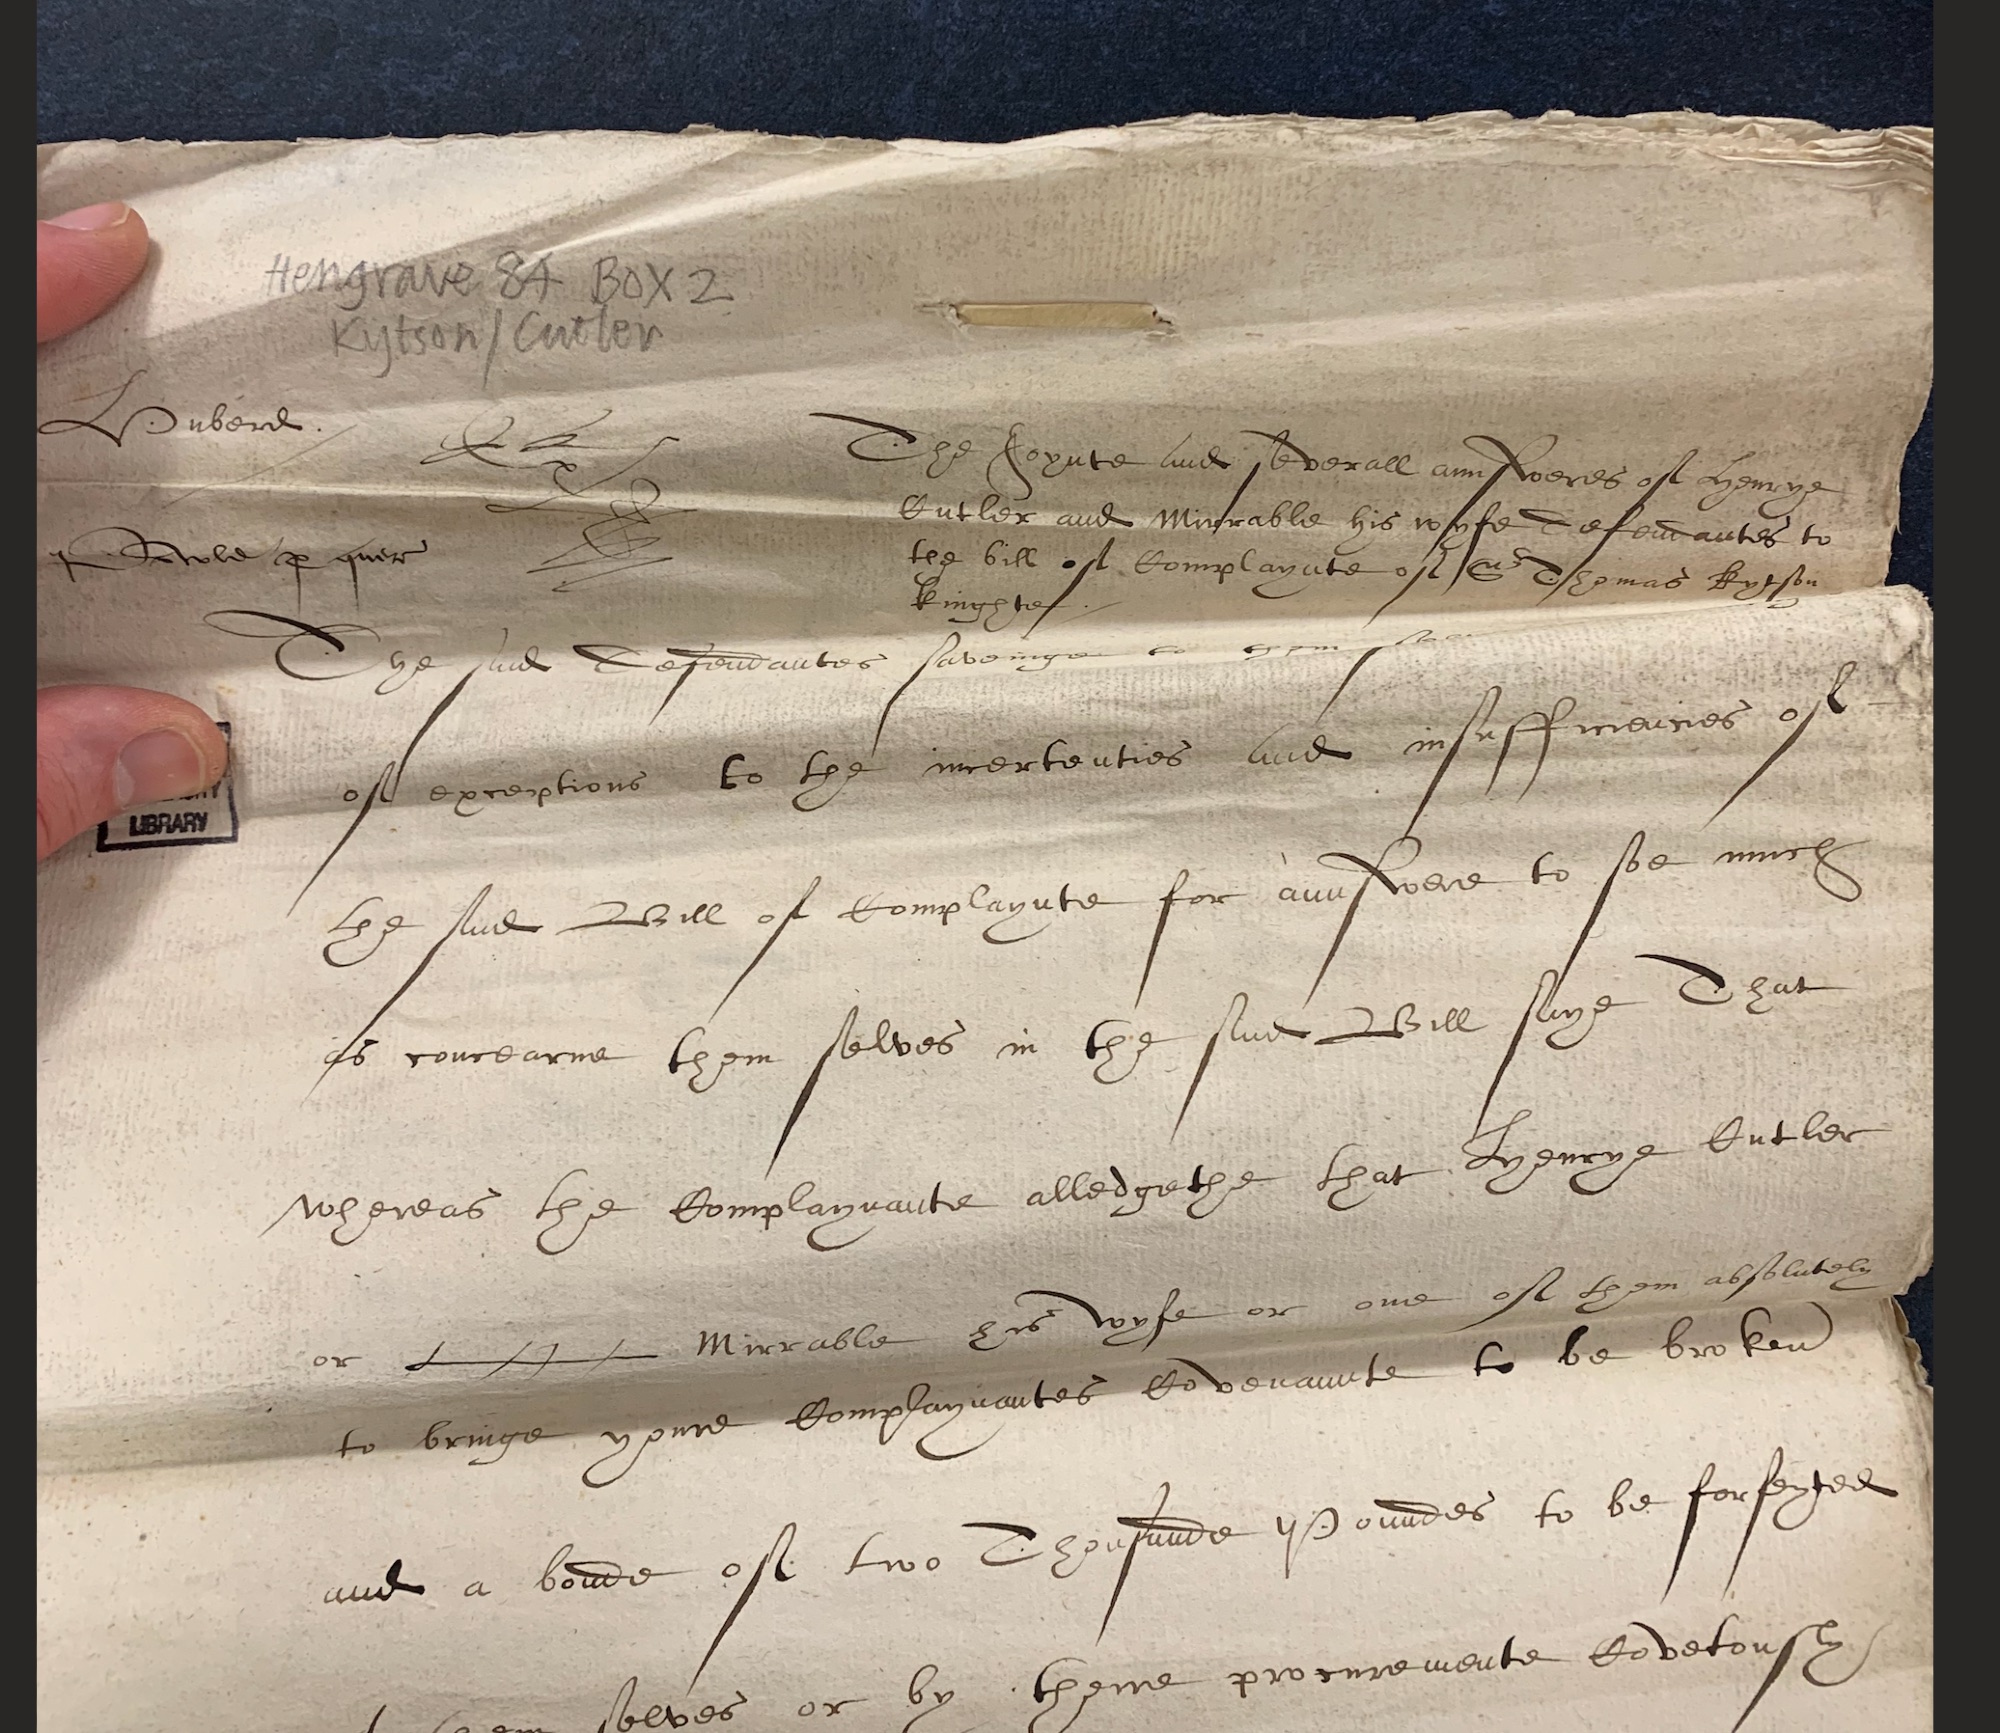 Hengrave 84 Box 2
Kytson/Cutler
Huberd.
The Joynte and severall aunsweres of Henrye
Cutler and Mirrable his wyfe Defendantes to
the bill of Complaynte of Sr Thomas Kytson
Kinghte.
p quer
The said Defendantes saveinge to them
of exceptions to the incertenties and insufficiencies of
the said Bill of Complaynte for aunswere to soe much
as concearne them selves in the said Bill saye That
whereas the Complaynante alledgethe that Henrye Cutler
or Mirrable his wyfe or one of them absolutely
to bringe youre Complaynantes Covenaunte to be broken
and a bonde of two Thousande Poundes to be forfeyted
them selves or by theire procuremente Covetously
LIBRARY